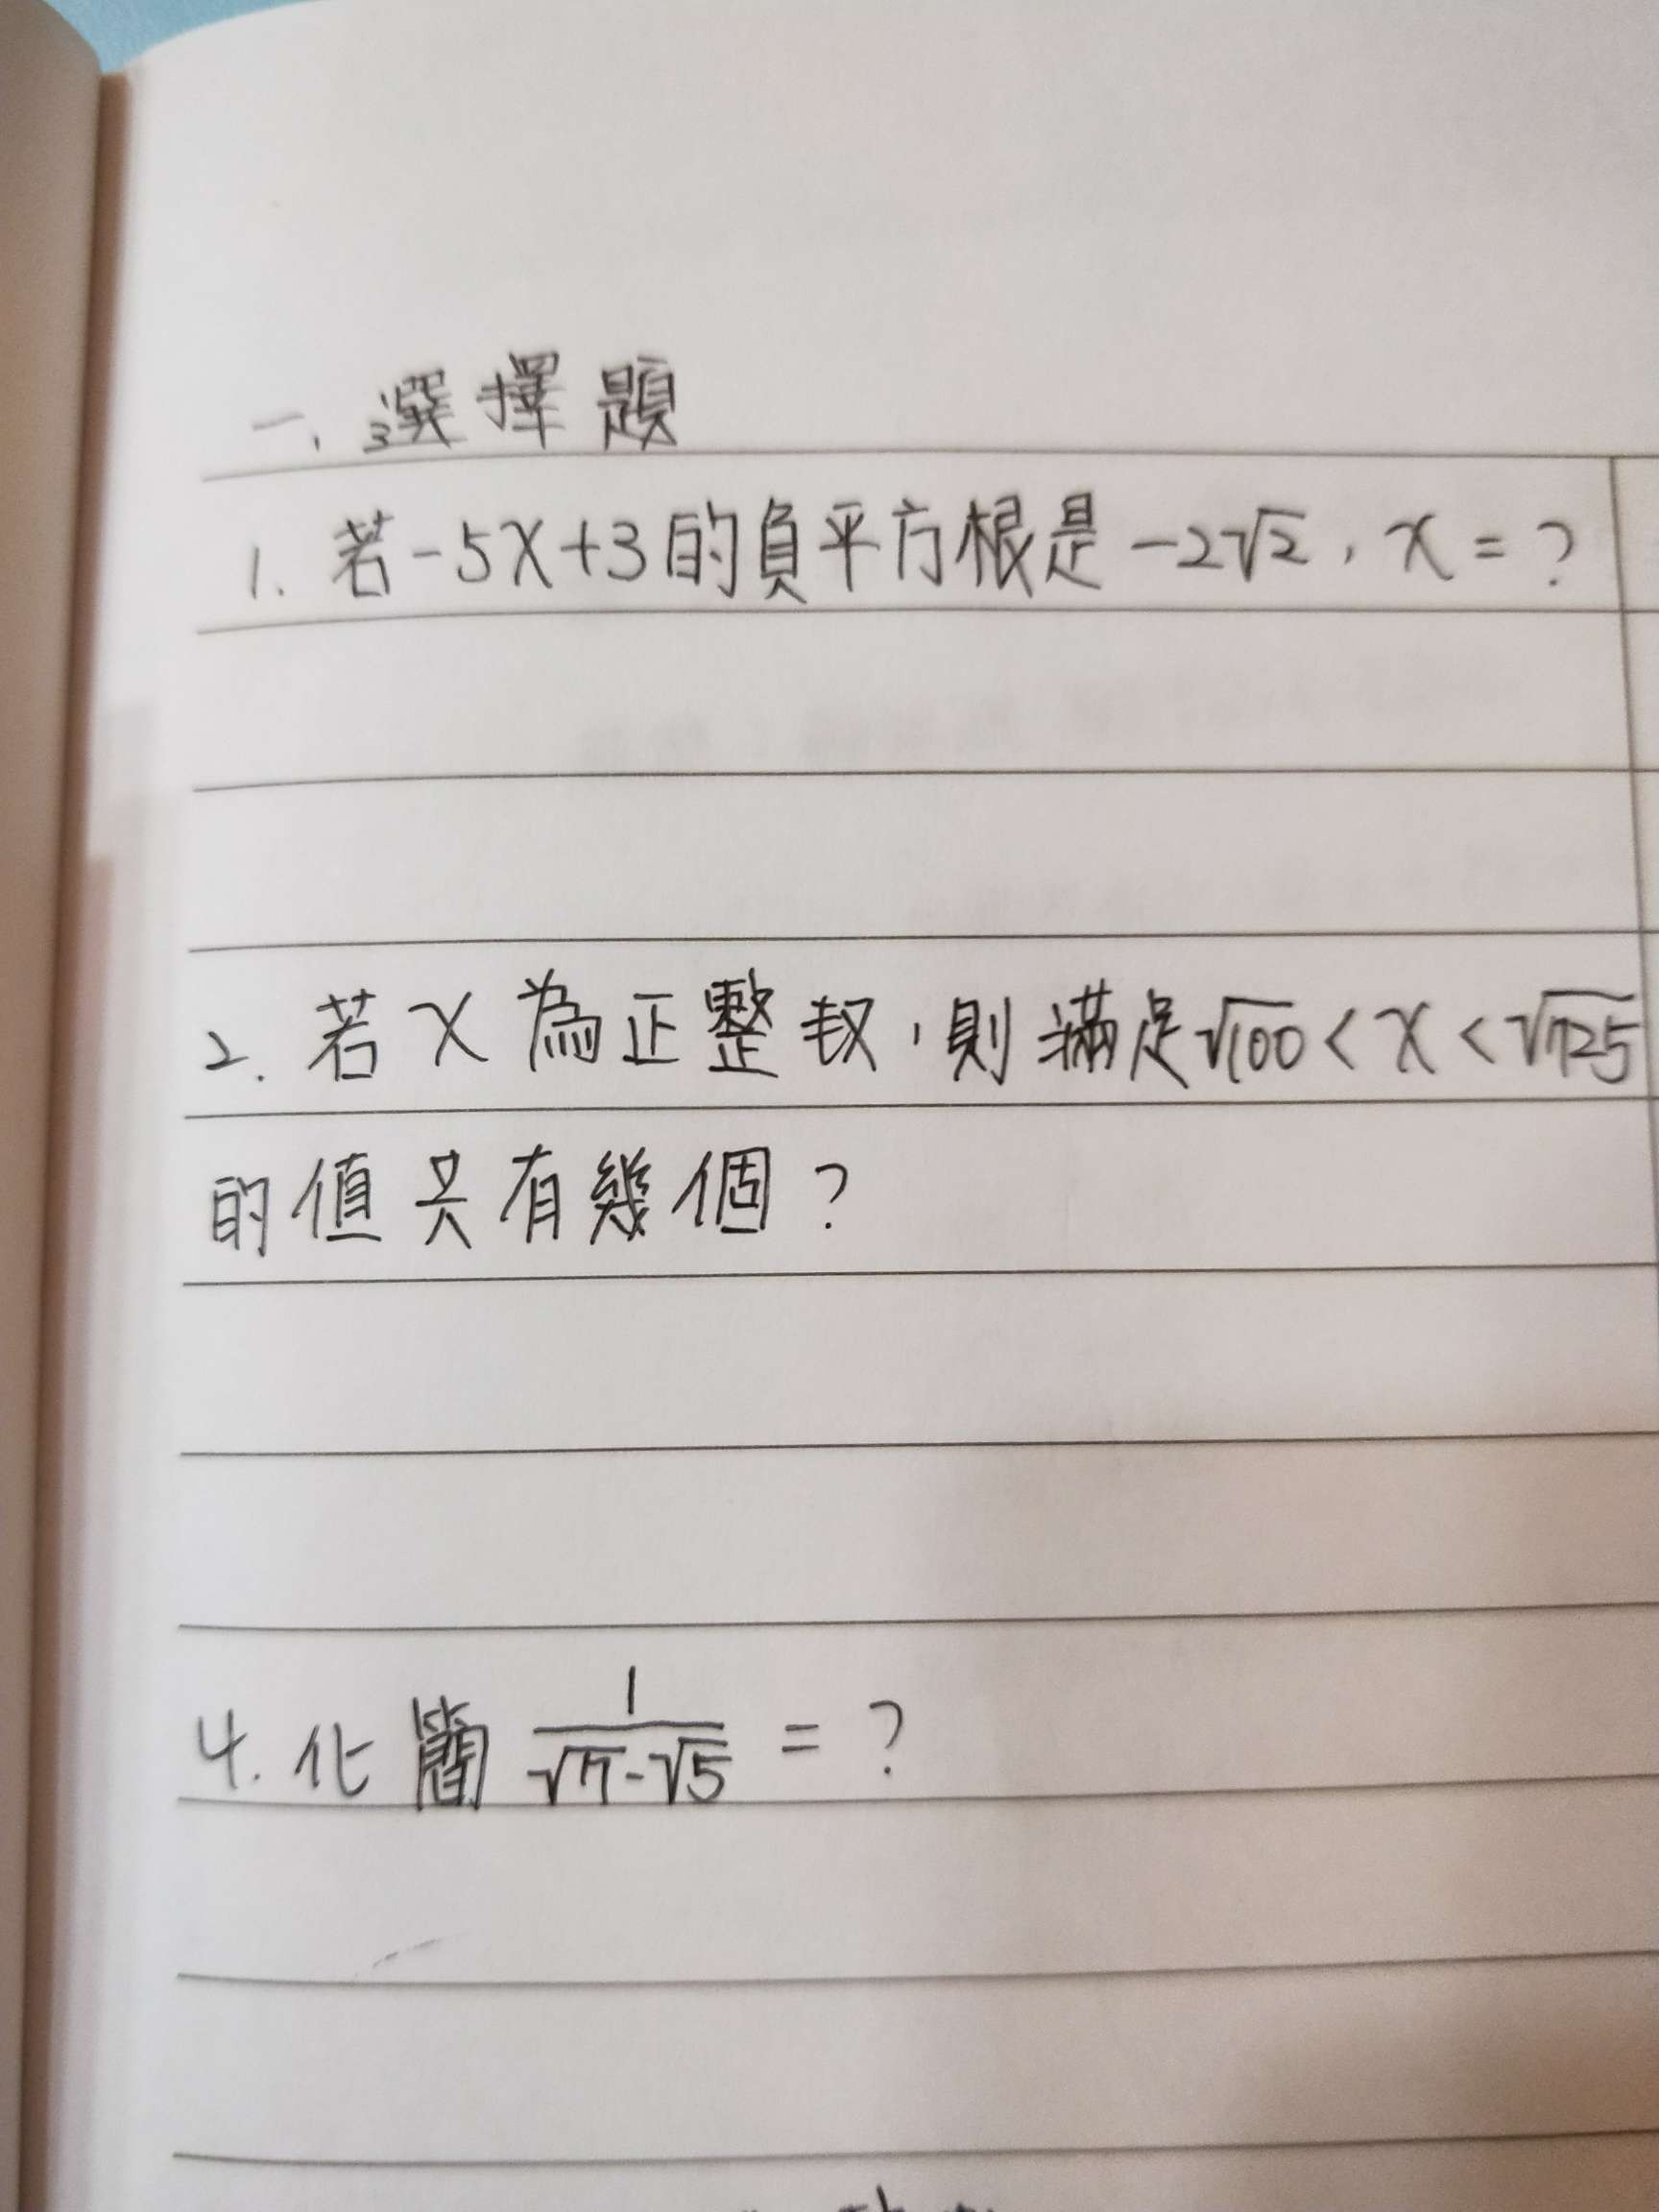 一、選擇題
1. 若-5x+3的負平方根是-2√2，x=?
2. 若x為正整数，則滿足√100<x<√725
的值共有幾個?
4. 化簡 1/(√7-√5) = ?